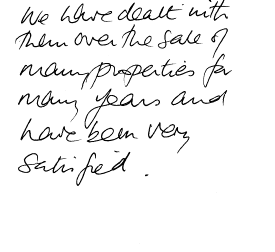 We have dealt with
them over the sale of
many properties for
many years and
have been very
satisfied.